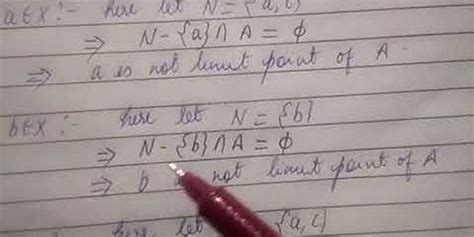 a∈X :- here let N = {a, c}
⇒ N - {a} ∩ A = ϕ
⇒ a is not limit point of A.
b∈X :- here let N = {b}
⇒ N - {b} ∩ A = ϕ
⇒ b is not limit point of A
here, let {a, c}